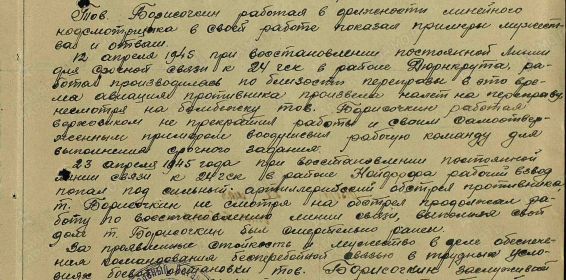 Тов. Борисочкин работая в должности линейного
надсмотрщика в своей работе показал примеры мужест-
ва и отваги.
12 апреля 1945 при восстановлении постоянной линии
для срочной связи к 24 гск в районе Дюрнкрута, ра-
бота производилась по близости переправы в это вре-
мя авиация противника произвела налет на переправу,
несмотря на бомбежку тов. Борисочкин работая
верхолазом не прекратил работы и своим самоотвер-
женным примером воодушевил рабочую команду для
выполнения срочного задания.
23 апреля 1945 года при восстановлении постоянной
линии связи к 24 гск в районе Кайдорфа рабочий взвод
попал под сильный артиллерийский обстрел противника,
т. Борисочкин не смотря на обстрел продолжал ра-
боту по восстановлению линии связи, выполняя свой
долг т. Борисочкин был смертельно ранен.
За проявленные стойкость и мужество в деле обеспече-
ния командования бесперебойной связью в трудных усло-
виях боевой обстановки тов. Борисочкин заслуживает